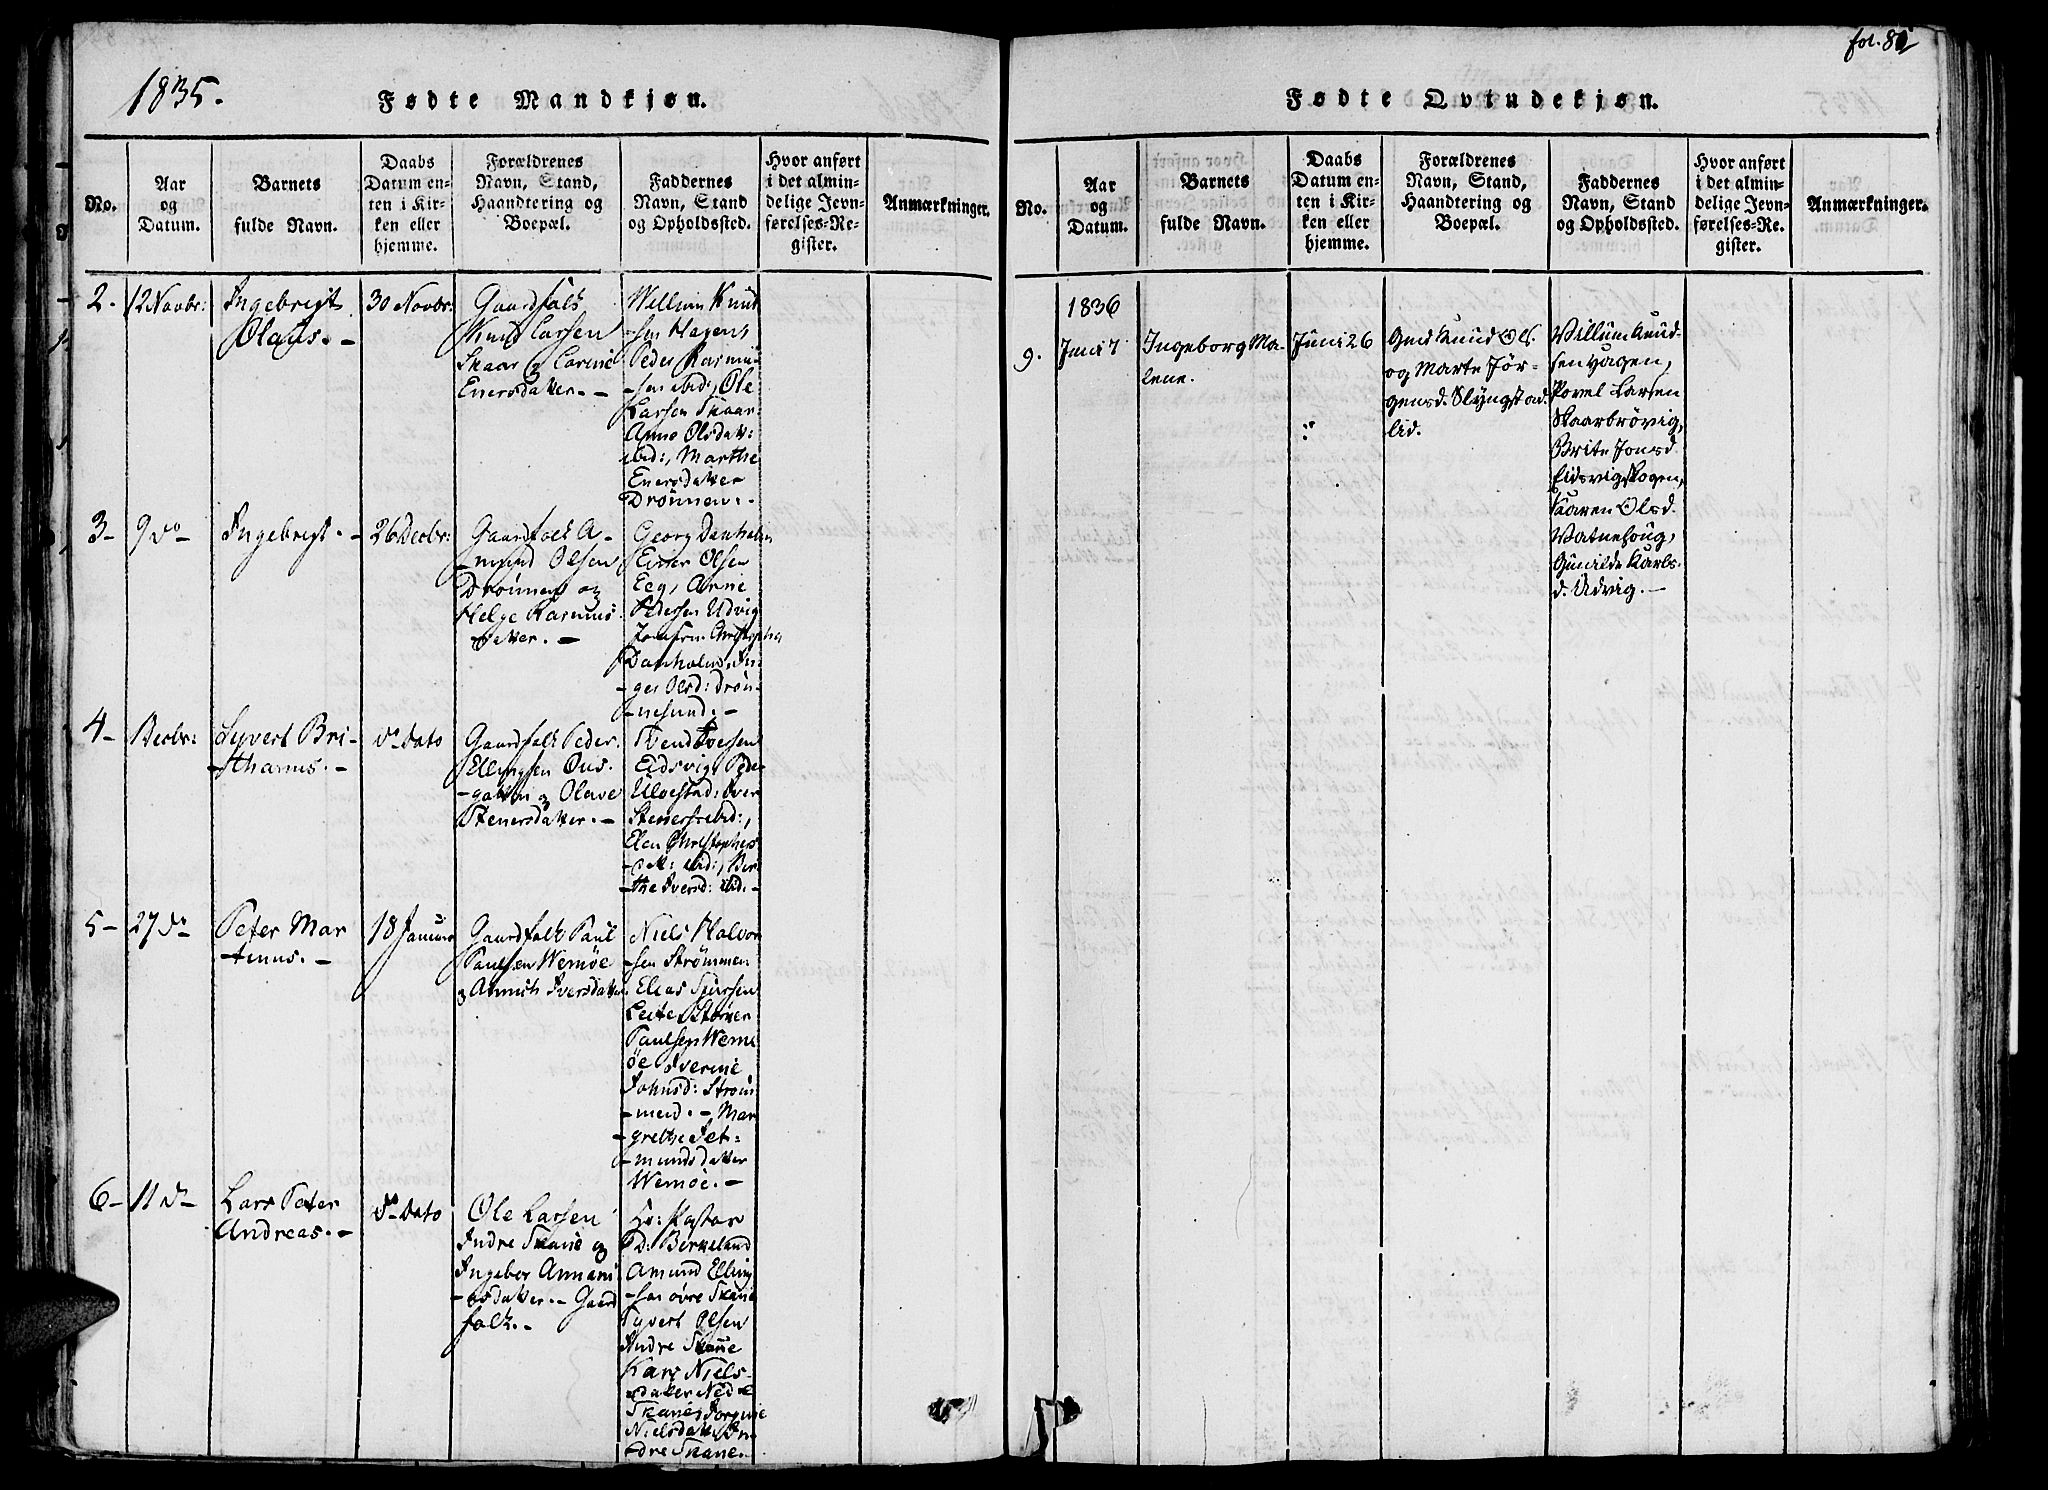 1835.
Fødte Mandkjøn.
No.
Aar
og
Datum.
Barnets
fulde Navn.
Daabs
Datum en-
ten i Kir-
ken eller
hjemme.
Forældrenes
Navn, Stand,
Haandtering og
Boepæl.
Faddernes
Navn, Stand
og Opholdssted.
Hvor anført
i det almin-
delige Jevn-
førelses-Re-
gister.
Anmærkninger.
2.
12 Novbr:
Ingebrigt
Olaus. -
30 Novbr:
Gaardfolk
Knud Larsen
Skaar og Carine
Enersdatter. -
Willum Knud
-sen Hagens
Peder Rasmus
-sen ibid:, Ole
Larsen Skaar.
Anne Olsdatt:
ibid:, Marthe
Enersdatter
Drønnen. -
3-
9 do -
Ingebrigt. -
26 Decbr:
Gaardfolk A-
-mund Olsen
Drønnen og
Helge Rasmus
datter. -
Georg Danholm
Einer Olsen
Eeg, Arne
Pedersen Udvig
Jomfru Christopha
Danholm, In-
-ger Olsd: Drøn-
-nesund. -
4-
Decbr:
Syvert Bri-
-thanus. -
do dato
Gaardfolk Peder
Ellingsen Ous-
-garden og Olave
Stenersdatter. -
Svend Iversen
Eidsvig, Peder
Ulvestad: Iver
Stenersen ibid:,
Elen Christophers
-datt: ibid:, Ber
-the Iversd: ibid. -
5-
27 do
Peter Mar
-tinus. -
18 Januar
Gaardfolk Paul
Paulsen Wemøe
og Annich Iversdatter.
Niels Halvor
-sen Strømmen
Elias Sjursen
Leite, Størker
Paulsen Wem-
øe Iverine
Johnsd: Strøm
-mend. -, Mar
-grethe Jet-
-munds datter
Wemøe. -
6-
11 do -
Lars Peter
Andreas. -
do dato
Ole Larsen
Indre Skane og
Ingebor Annani
-asdatter. - Gaard
folk. -
Hr: Pastor
P: Birkeland
Amund Elling
-sen øvre Skane
Syvert Olsen
Indre Skane
Kari Niels-
-datter Nedre
Skane, Jorgine
Nielsdatt, In-
-dre Skane.
fol. 82
Fødte Qvindekjøn.
No.
Aar
og
Datum.
Barnets
fulde Navn.
Daabs
Datum en-
ten i Kir-
ken eller
hjemme.
Forældrenes
Navn, Stand,
Haandtering og
Boepæl.
Faddernes
Navn, Stand
og Opholdssted.
Hvor anført
i det almin-
delige Jevn-
førelses-Re-
gister.
Anmærkninger.
1836
9.
Juni 7
Ingeborg Ma-
lene.
Juni 26
Gmd Knud Ols.
og Marte Jør-
gensd. Slyngstad
lid.
Willum Knud-
sen Hagen,
Povel Larsen
Skaarbrøvig,
Brite Jonsd
Eidsvigskogen,
Kaaren Olsd.
Vatnehoug,
Gunilde Karls-
d. Udvig. -